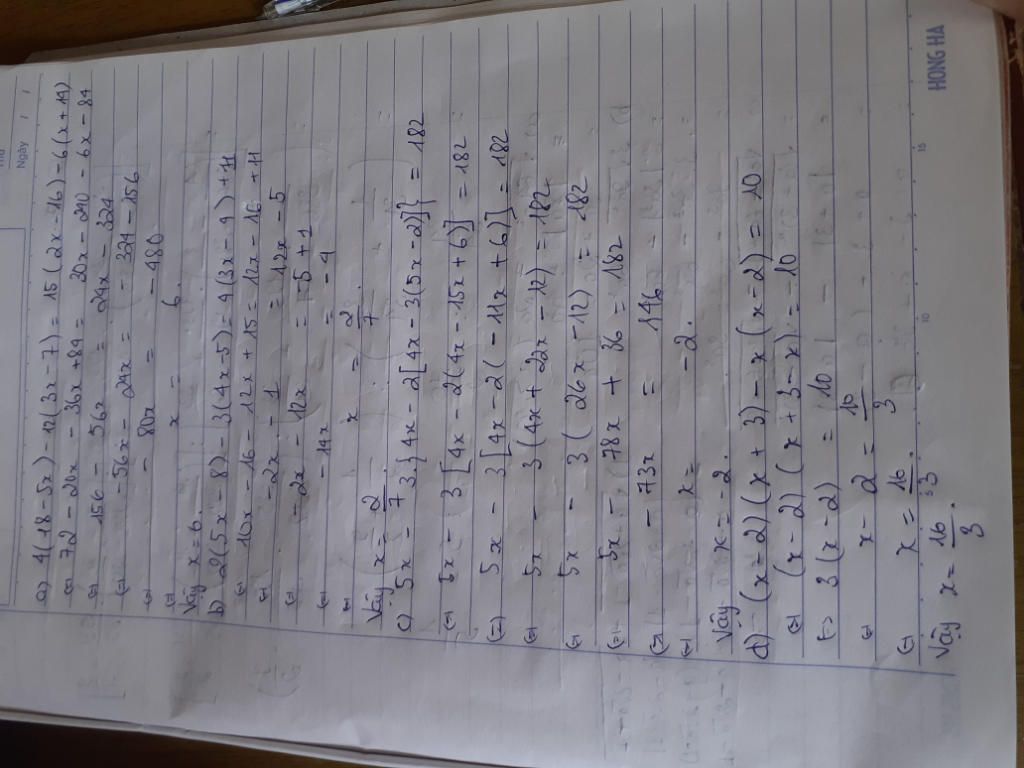 Thứ
Ngày / /
a) 4(18-5x)-12(3x-7)=15(2x-16)-6(x+14)
⇔ 72-20x-36x+84=30x-240-6x-84
⇔ 156-56x=24x-324
⇔ -56x-24x=-324-156
⇔ -80x=-480
⇔ x=6.
Vậy x=6.
b) 2(5x-8)-3(4x-5)=4(3x-4)+11
⇔ 10x-16-12x+15=12x-16+11
⇔ -2x-1=12x-5
⇔ -2x-12x=-5+1
⇔ -14x=-4
x=2/7.
Vậy x=2/7.
c) 5x-3{4x-2[4x-3(5x-2)]}=182
⇔ 5x-3[4x-2(4x-15x+6)]=182
⇔ 5x-3[4x-2(-11x+6)]=182
⇔ 5x-3(4x+22x-12)=182
⇔ 5x-3(26x-12)=182
⇔ 5x-78x+36=182
⇔ -73x=146
⇔ x=-2.
Vậy x=-2.
d) (x-2)(x+3)-x(x-2)=10
⇔ (x-2)(x+3-x)=10
⇔ 3(x-2)=10
⇔ x-2=10/3
⇔ x=16/3.
Vậy x=16/3.
HONG HA